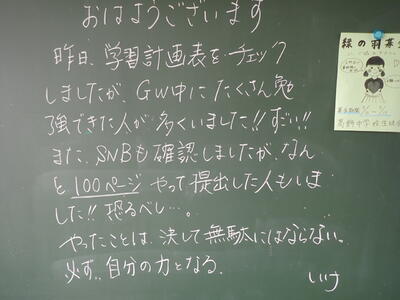 おはようございます
昨日、学習計画表をチェック
しましたが、GW中にたくさん勉
強できた人が多くいました!!すごい!!
また、SNBも確認しましたが、なん
と100ページやって提出した人もいま
した!!恐るべし…。
やったことは、決して無駄にはならない。
必ず、自分の力となる。
いけ
緑の羽募金